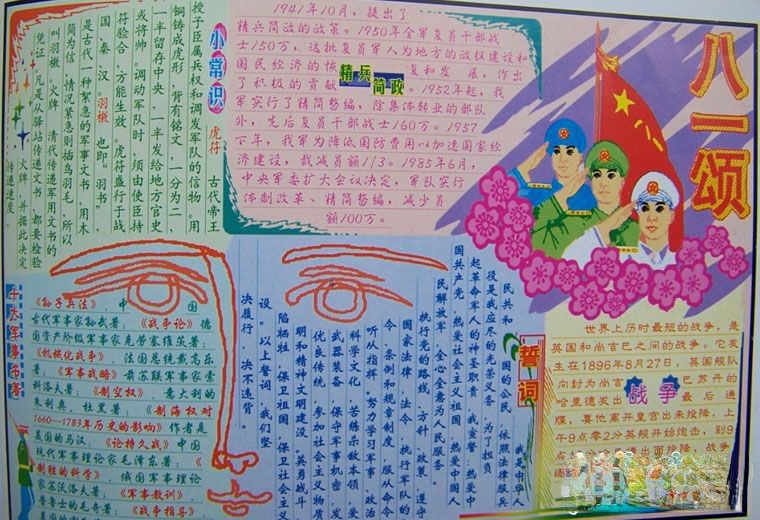 八一颂
小常识
虎符 古代帝王
授予臣属兵权和调发军队的信物。用
铜铸成虎形，背有铭文，一分为二，
一半留存中央，一半发给地方官史
或将帅。调动军队时，须由使臣持
符验合，方能生效。虎符盛行于战
国秦汉。羽檄 也即 羽书。
是古代一种紧急的军事文书，用木
简为信，情况紧急则插鸟羽毛，所以
叫羽檄。火牌 清代传递军用文书的
凭证，凡是从驿站传递文书，都要检验
火牌，并据此决定
传递速度。
1941年10月，提出了
精兵简政的政策。1950年全军复员干部战
士150万，这批复员军人为地方的政权建设和
国民经济的恢复和发展，作出
了积极的贡献。1952年起，我
军实行了精简整编，除集体转业的部队
外，先后复员干部战士160万。1957
下年，我军为降低国防费用以加速国家经
济建设，裁减员额1/3。1985年6月，
中央军委扩大会议决定，军队实行
体制改革、精简整编，减少员
额100万。
精兵
简政
《孙子兵法》，中国
古代军事家孙武著；《战争论》德
国资产阶级军事家克劳塞维茨著；
《机械化战争》，法国总统戴高乐
著；《军事战略》前苏联军事家索
科洛夫著；《制空权》，意大利的
朱利奥，杜黑著；《制海权对
1660—1783年历史的影响》作者是
美国的马汉；《论持久战》中国
现代军事理论家毛泽东著；《
制胜的科学》，俄国军事理论
家苏沃洛夫著；《军事教训》
普鲁士的毛奇著；《战争指导》，
誓词
我是中华人
民共和国的公民，依照法律服兵
役是我应尽的光荣义务，为了担负
起革命军人的神圣职责，我宣誓，热爱中
国共产党，热爱社会主义祖国，热爱中国人
民解放军，全心全意为人民服务，
执行党的路线、方针、政策，遵守
国家法律、法令，执行军队的
令、条例和规章制度，服从命令
听从指挥，努力学习军事、政治
科学文化，苦练杀敌本领，爱
武器装备，保守军事机密，发
优良传统，参加社会主义物质
明和精神文明建设，英勇战斗
陷牺牲，保卫祖国，保卫社会主义
设。以上誓词，我们坚
决履行，决不违背。
世界上历时最短的战争，是
英国和尚吉巴之间的战争。它发
生在1896年8月27日，英国舰队
向封为尚吉巴苏丹的
哈里德发出最后通
牒，要他离开皇宫出来投降，上
午9点零2分英舰开始炮击，到9
战争